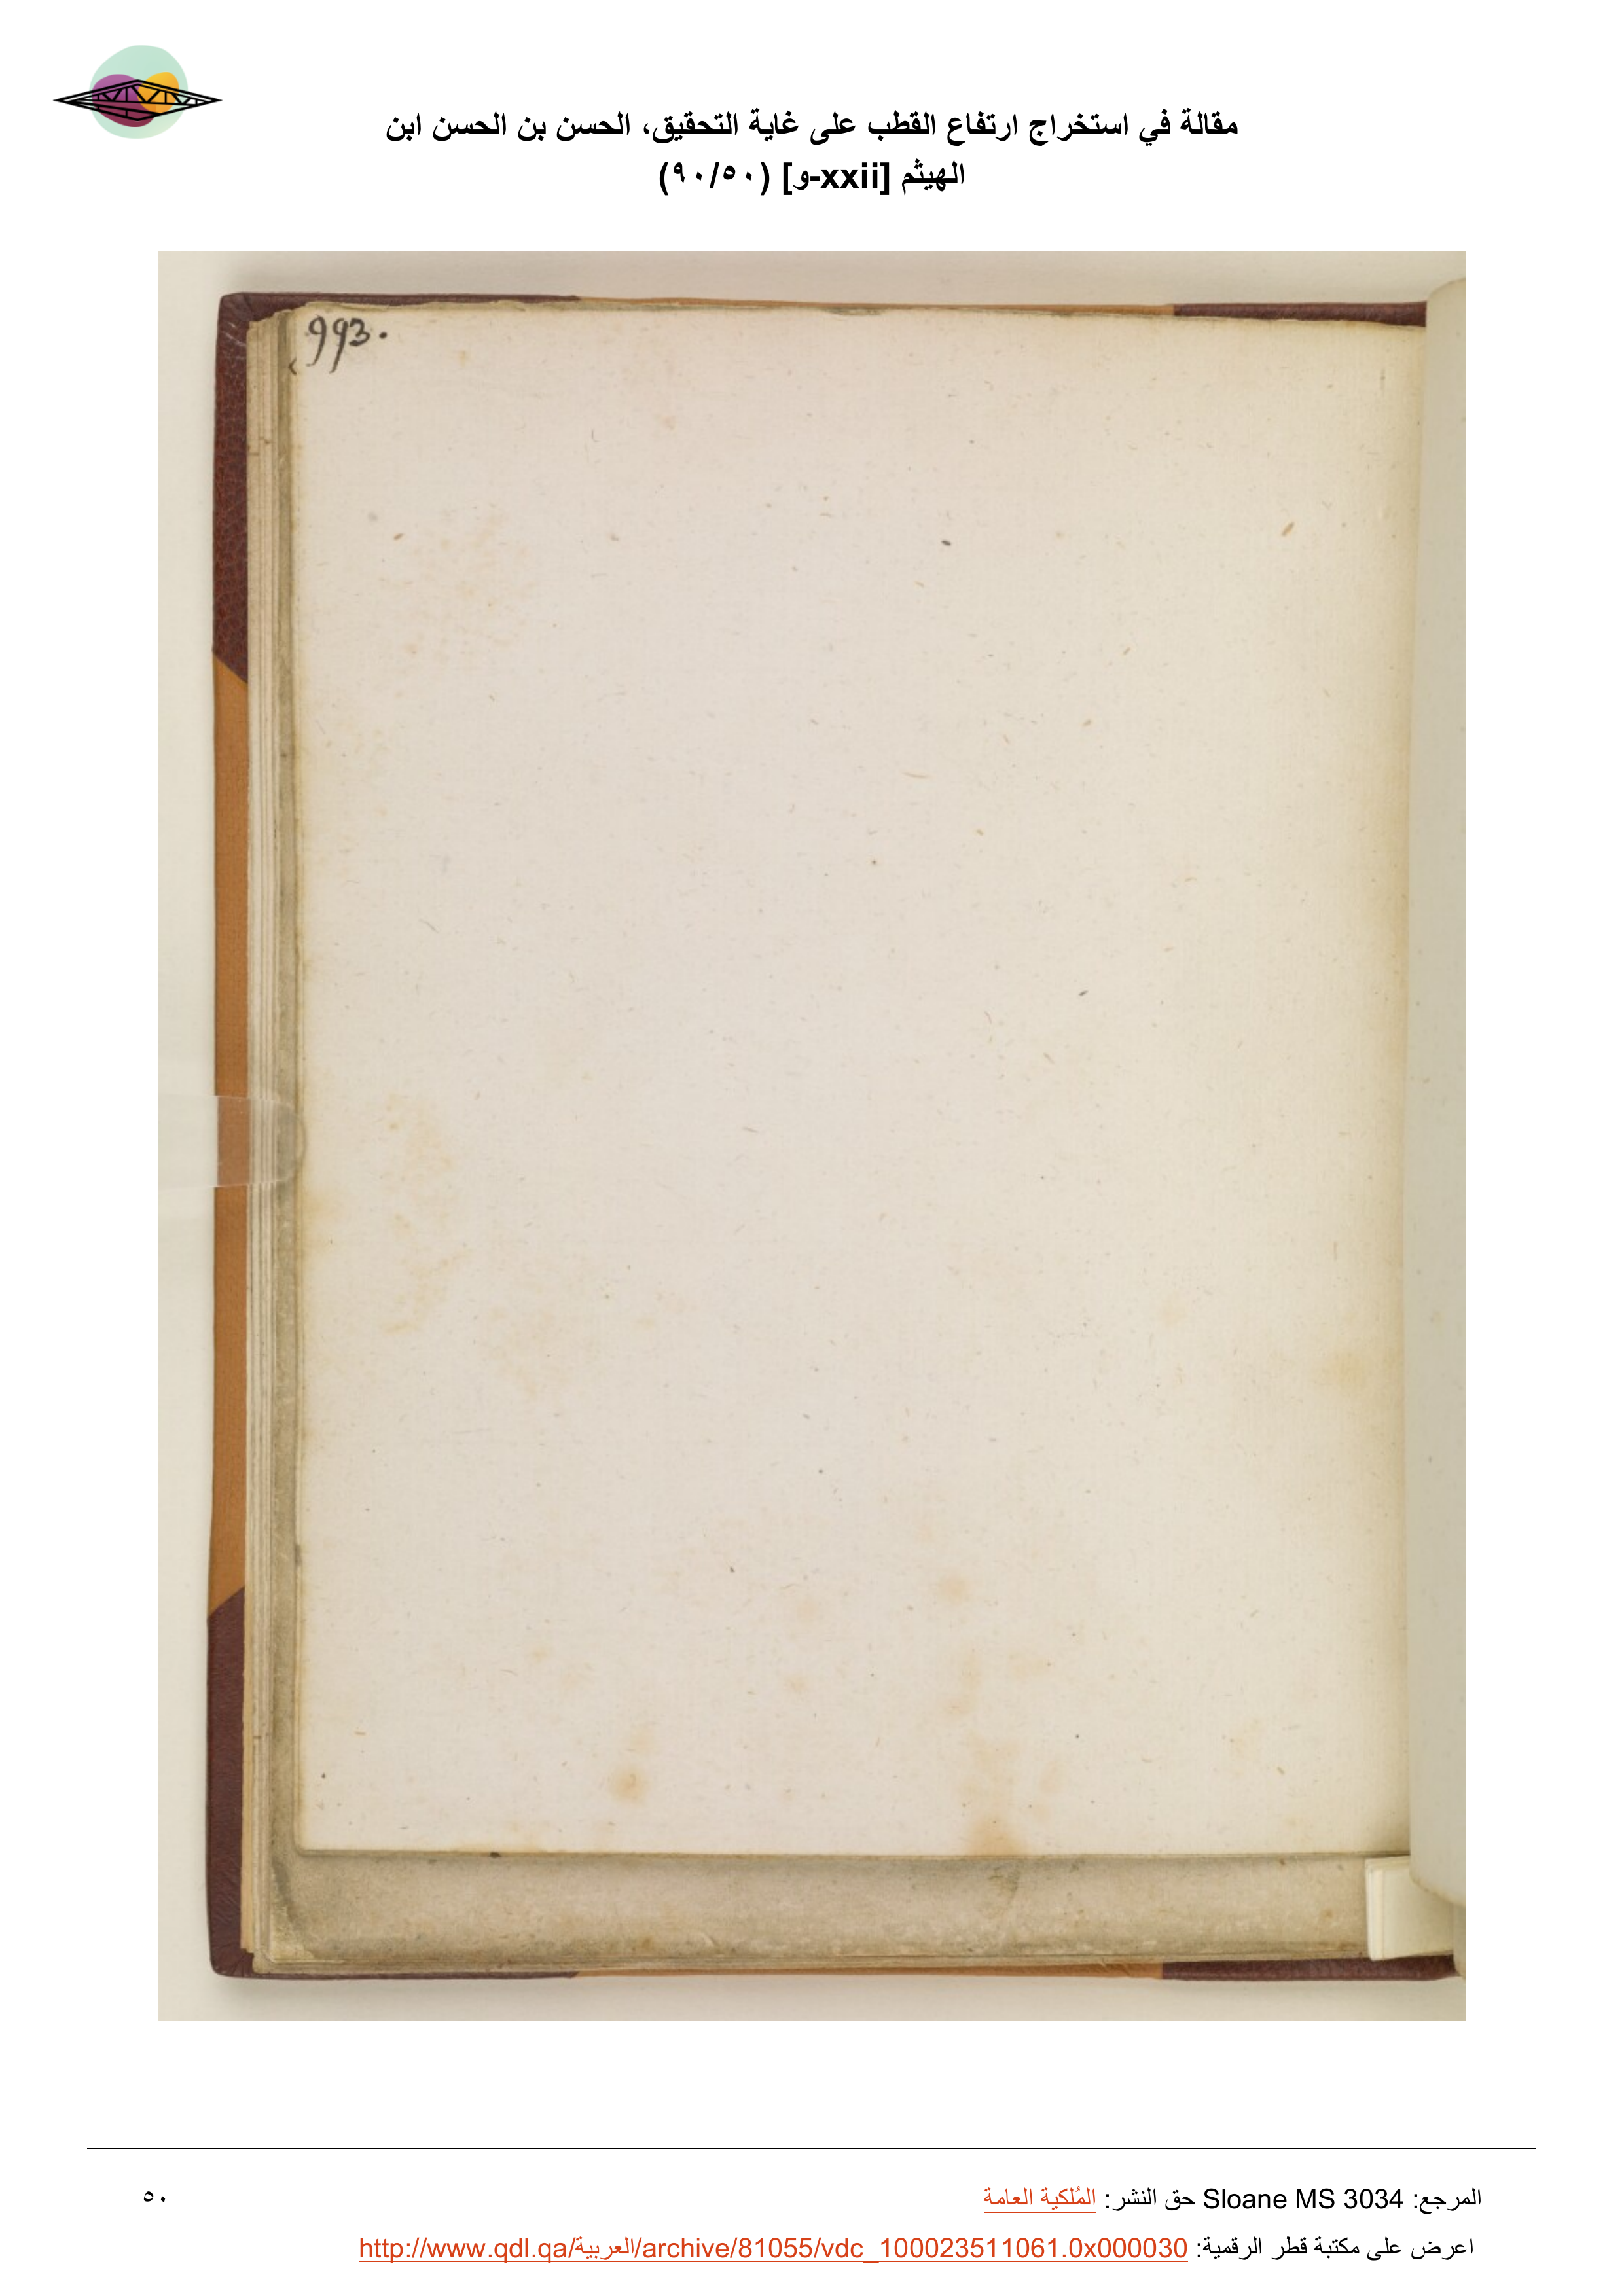 مقالة في استخراج ارتفاع القطب على غاية التحقيق، الحسن بن الحسن ابن
الهيثم [xxii-و] (٩٠/٥٠)
993.
المرجع: Sloane MS 3034 حق النشر: المُلكية العامة
٥٠
اعرض على مكتبة قطر الرقمية: http://www.qdl.qa/العربية/archive/81055/vdc_100023511061.0x000030